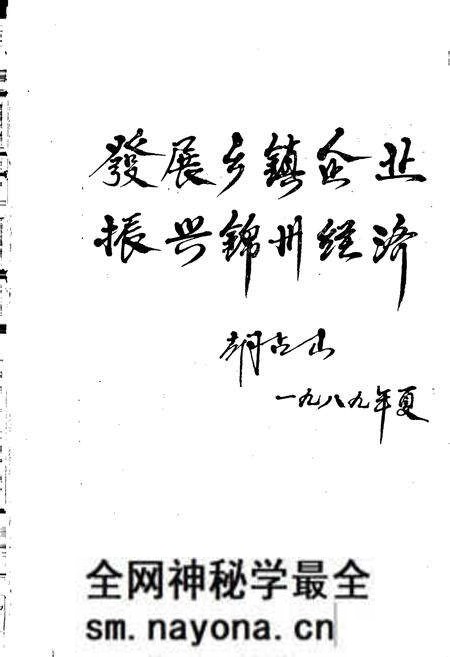 發展乡镇企业
振兴錦州经济
胡占山
一九八九年夏
全网神秘学最全
sm.nayona.cn